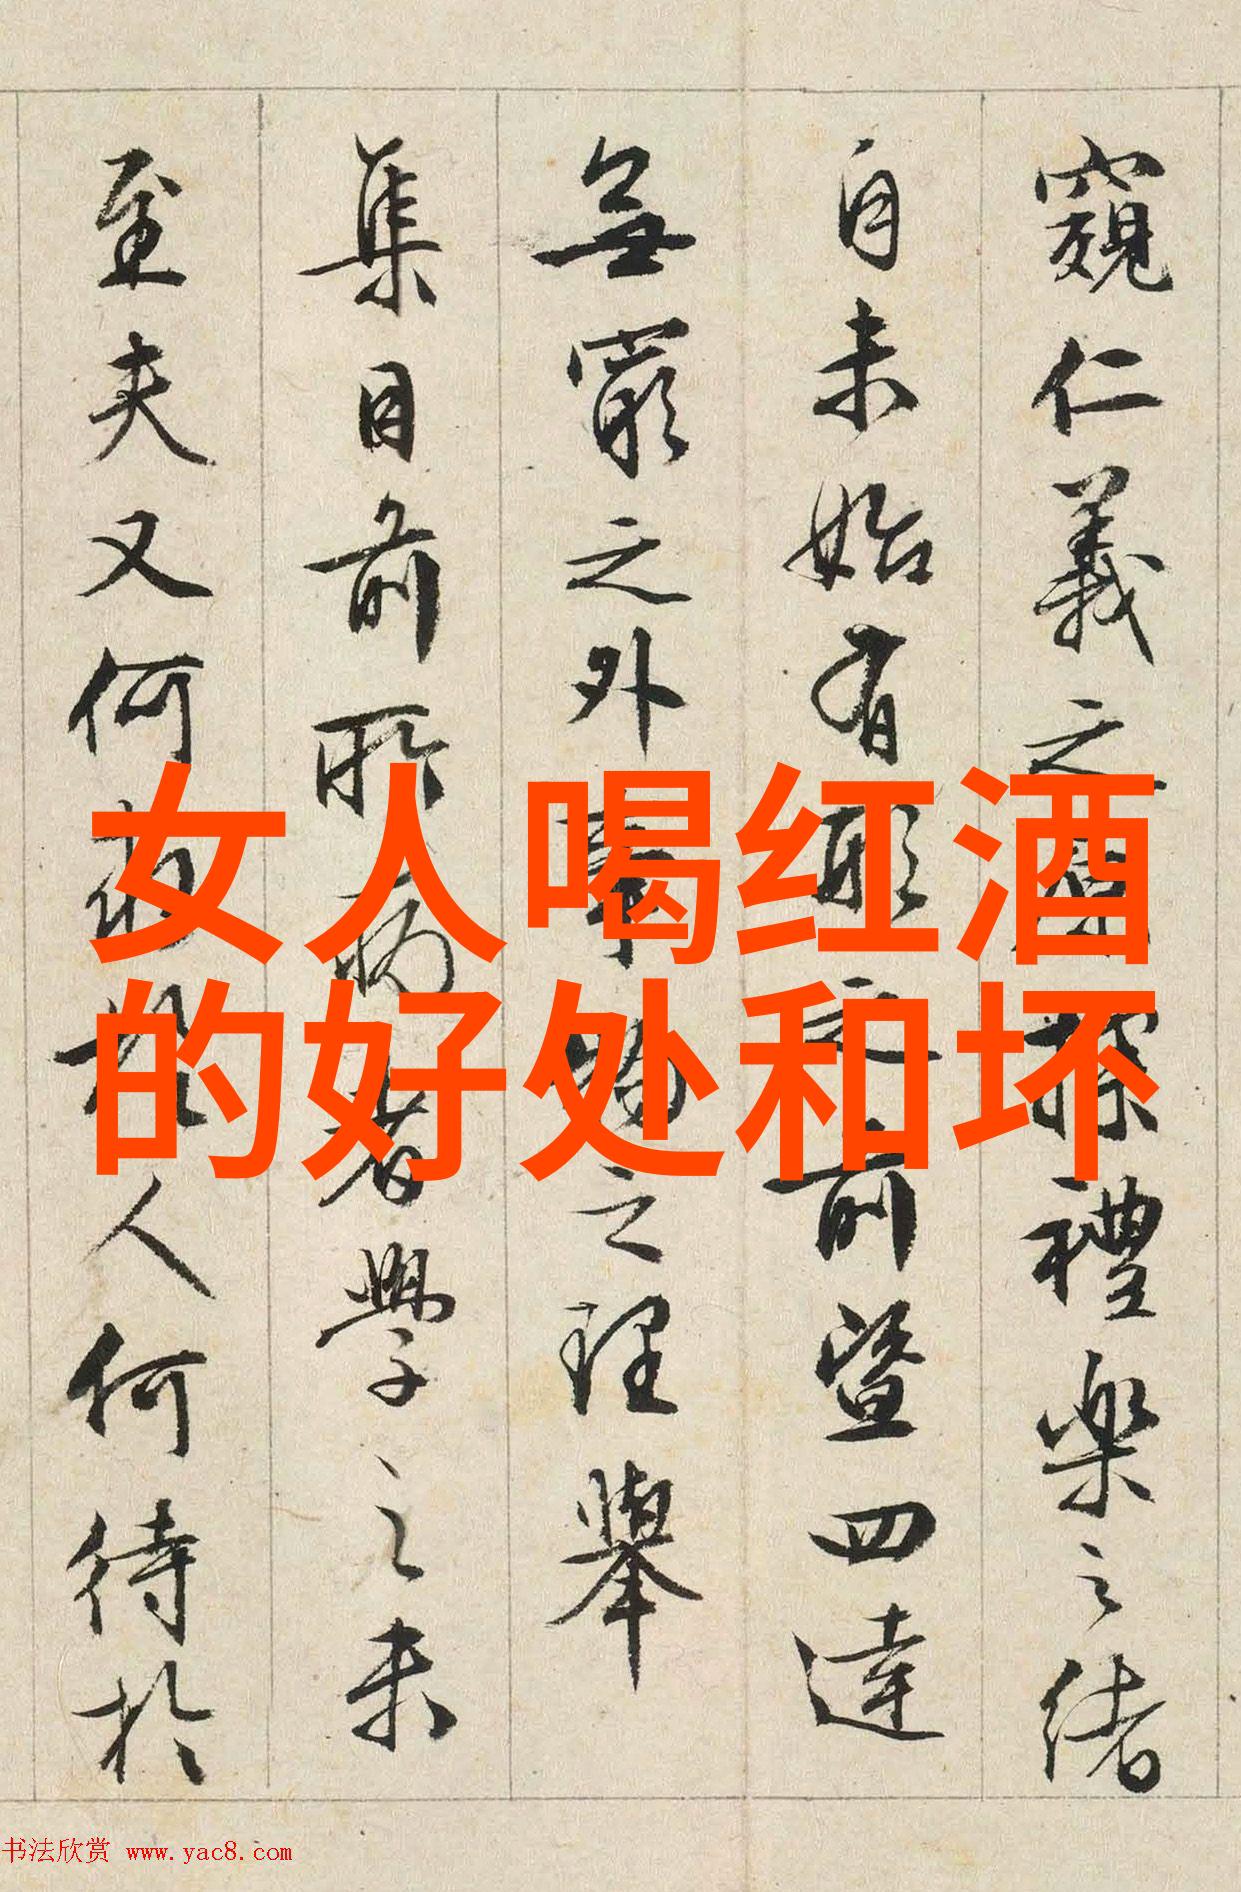 女人喝红酒
的好处和坏
窺仁義之原探禮樂之緒
自未始有形之前暨四達
無窮之外事物之理舉
集目前所病者學之未
至夫又何求於人何待於
书法欣赏 www.yac8.com